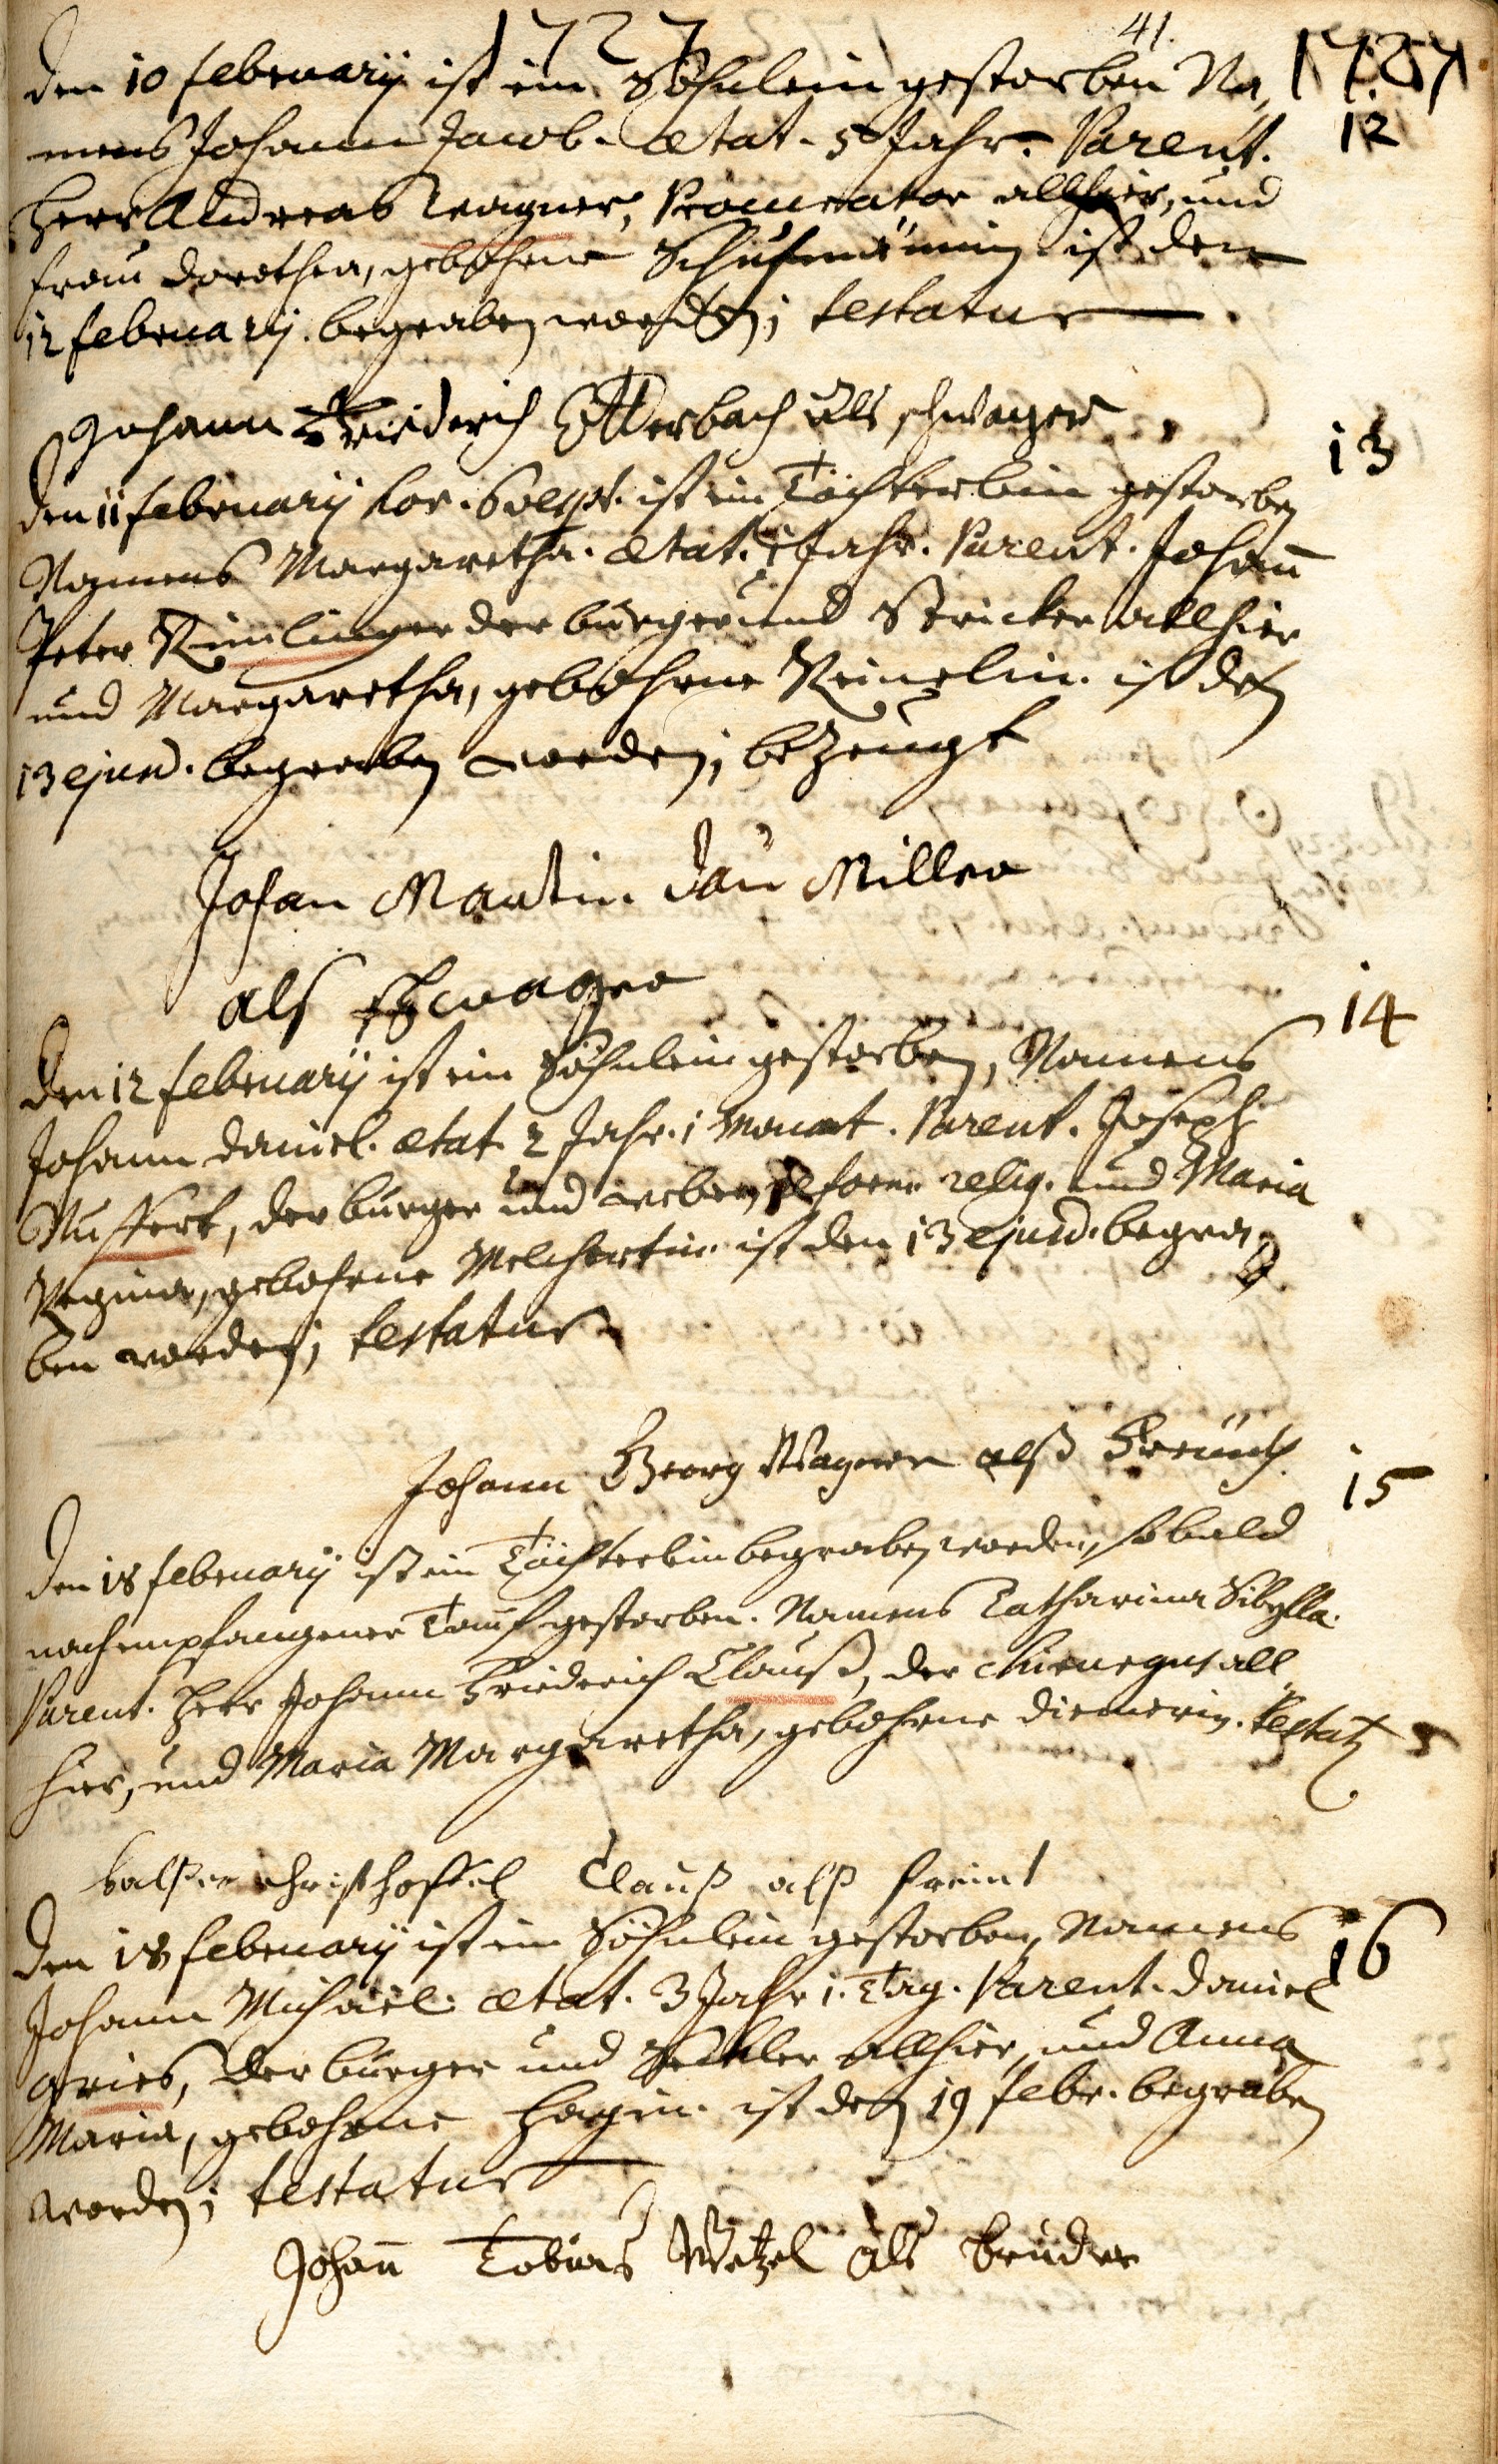 1727 41. 1727
den 10 februarij ist ein Söhnlein gestorben Na,
mens Johann Jacob. ætat. 5 Jahr. Parent. 12
Herr Andreas Wagner, Procurator allhier, und
frau Dorothea, gebohrne ist den
12 februarij. begraben worden; testatur
Johann Friderich Otterbach als schwager
13
den 11 februarij hor. 6 vesp. ist ein Töchterlein gestorben
Namens Margaretha. ætat. 1 Jahr. Parent. Johann
Peter der burger und Stricker allhier
und Margaretha, gebohrne ist den
13 ejusd. begraben worden; bezeugt
Johan Martin Miller
als schwager
14
den 12 februarij ist ein Söhnlein gestorben, Namens
Johann Daniel. ætat. 2 Jahr. 1 Monat. Parent. Joseph
der burger und weber, reform. relig. und Maria
Regina, gebohrne Melchertin. ist den 13 ejusd. begra,
ben worden; testatur
Johann Georg Wagner alß Freünd
15
den 18 februarij ist ein Töchterlein begraben worden, so bald
nach empfangener Tauf gestorben. Namens Catharina Sibylla.
Parent. Herr Johann Friederich Clauß, der Chirurgus all,
hier, und Maria Margaretha, gebohrne Diemerin. testatur
Christhoffel Clauß alß freint
den 18 februarij ist ein Söhnlein gestorben, Namens
16
Johann Michäel. ætat. 3 Jahr 1. Tag. Parent. Daniel
Gries, der burger und allhier, und Anna
Maria, gebohrne Hagin. ist den 19 febr. begraben
worden; testatur
Johann Tobias Wetzel als bruder